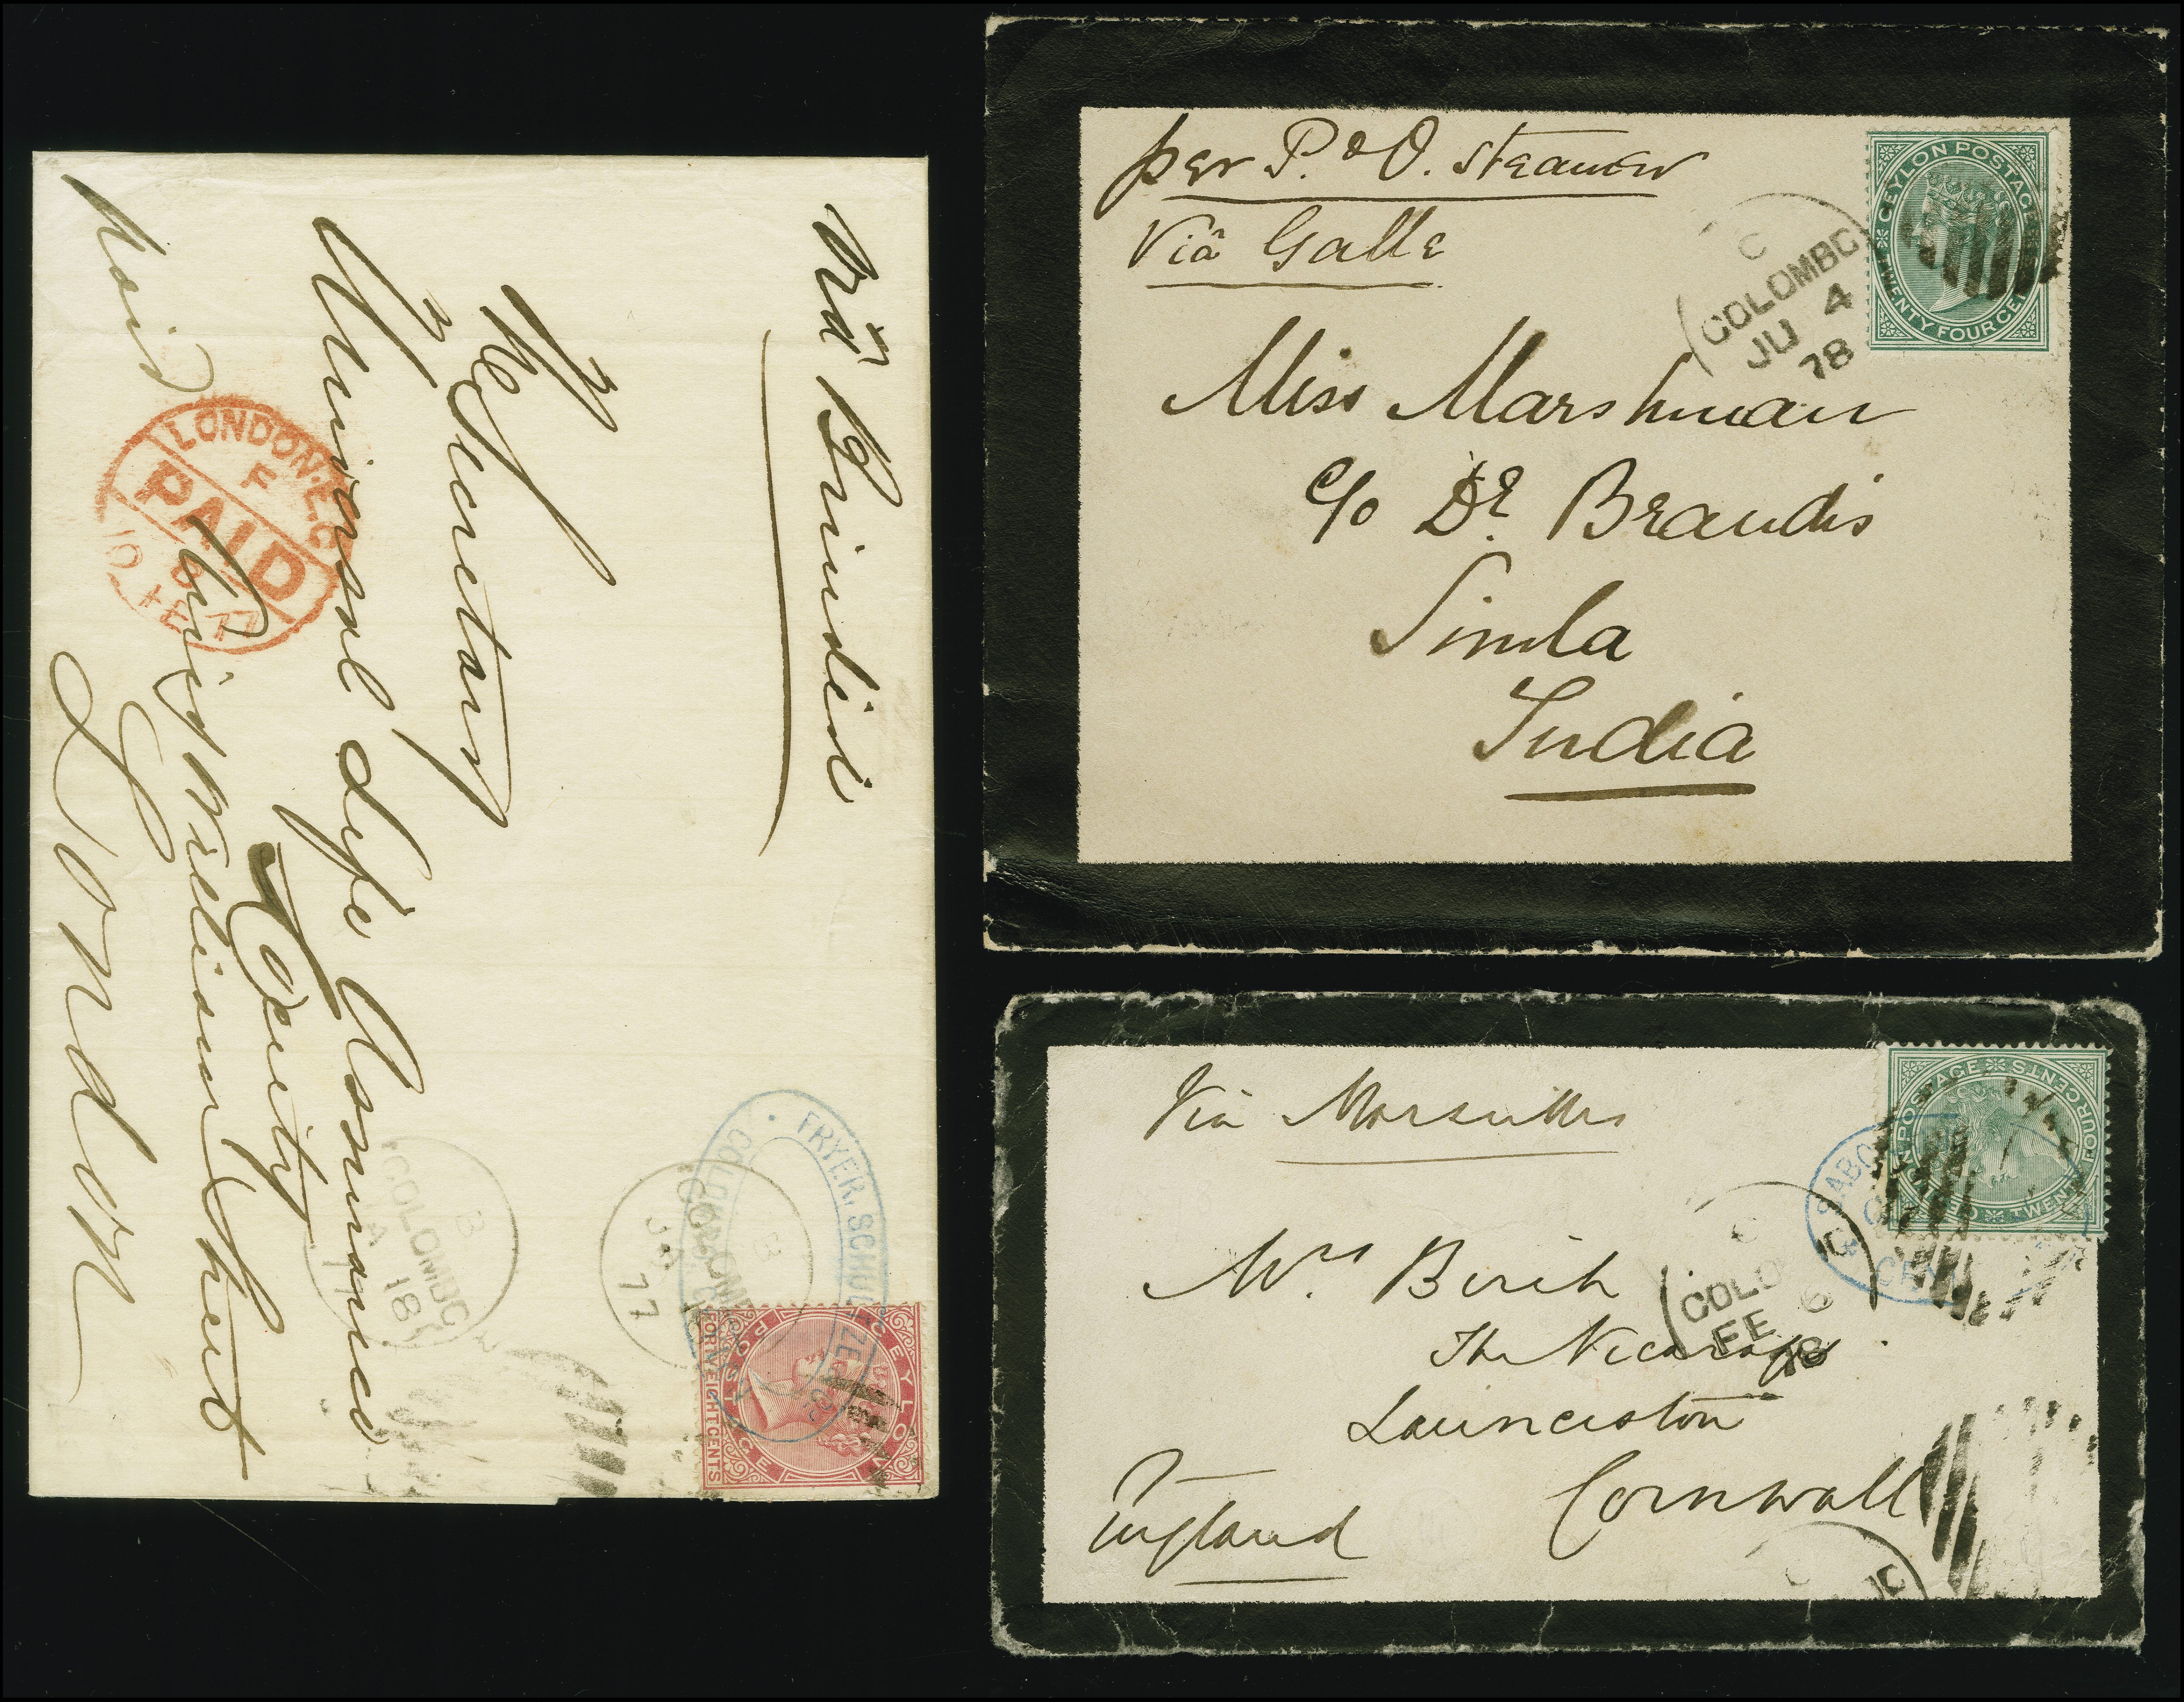 Viâ Brindisi
The Secretary
Universal Life Assurance
Society
King William Street
London
paid
LONDON.E.C
F
PAID
10 FE 77
B
COLOMBO
JA 18
77
B
COLOMBO
JA
77
FRYER, SCHULTZE &
COLOMBO
CEYLON POSTAGE
FORTY EIGHT CENTS
per P. & O. Steamer
Viâ Galle
Miss Marshman
c/o Dr. Brandis
Simla
India
C
COLOMBO
JU 4
78
CEYLON POSTAGE
TWENTY FOUR CENTS
Via Marseilles
Mrs Birch
The Vicarage
Launceston
Cornwall
England
C
COLO
FE 6
78
CEYLON POSTAGE
TWENTY FOUR CENTS